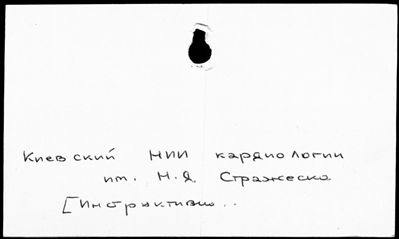 Киевский НИИ кардиологии
им. Н.Д. Стражеско
[Инструктивно..